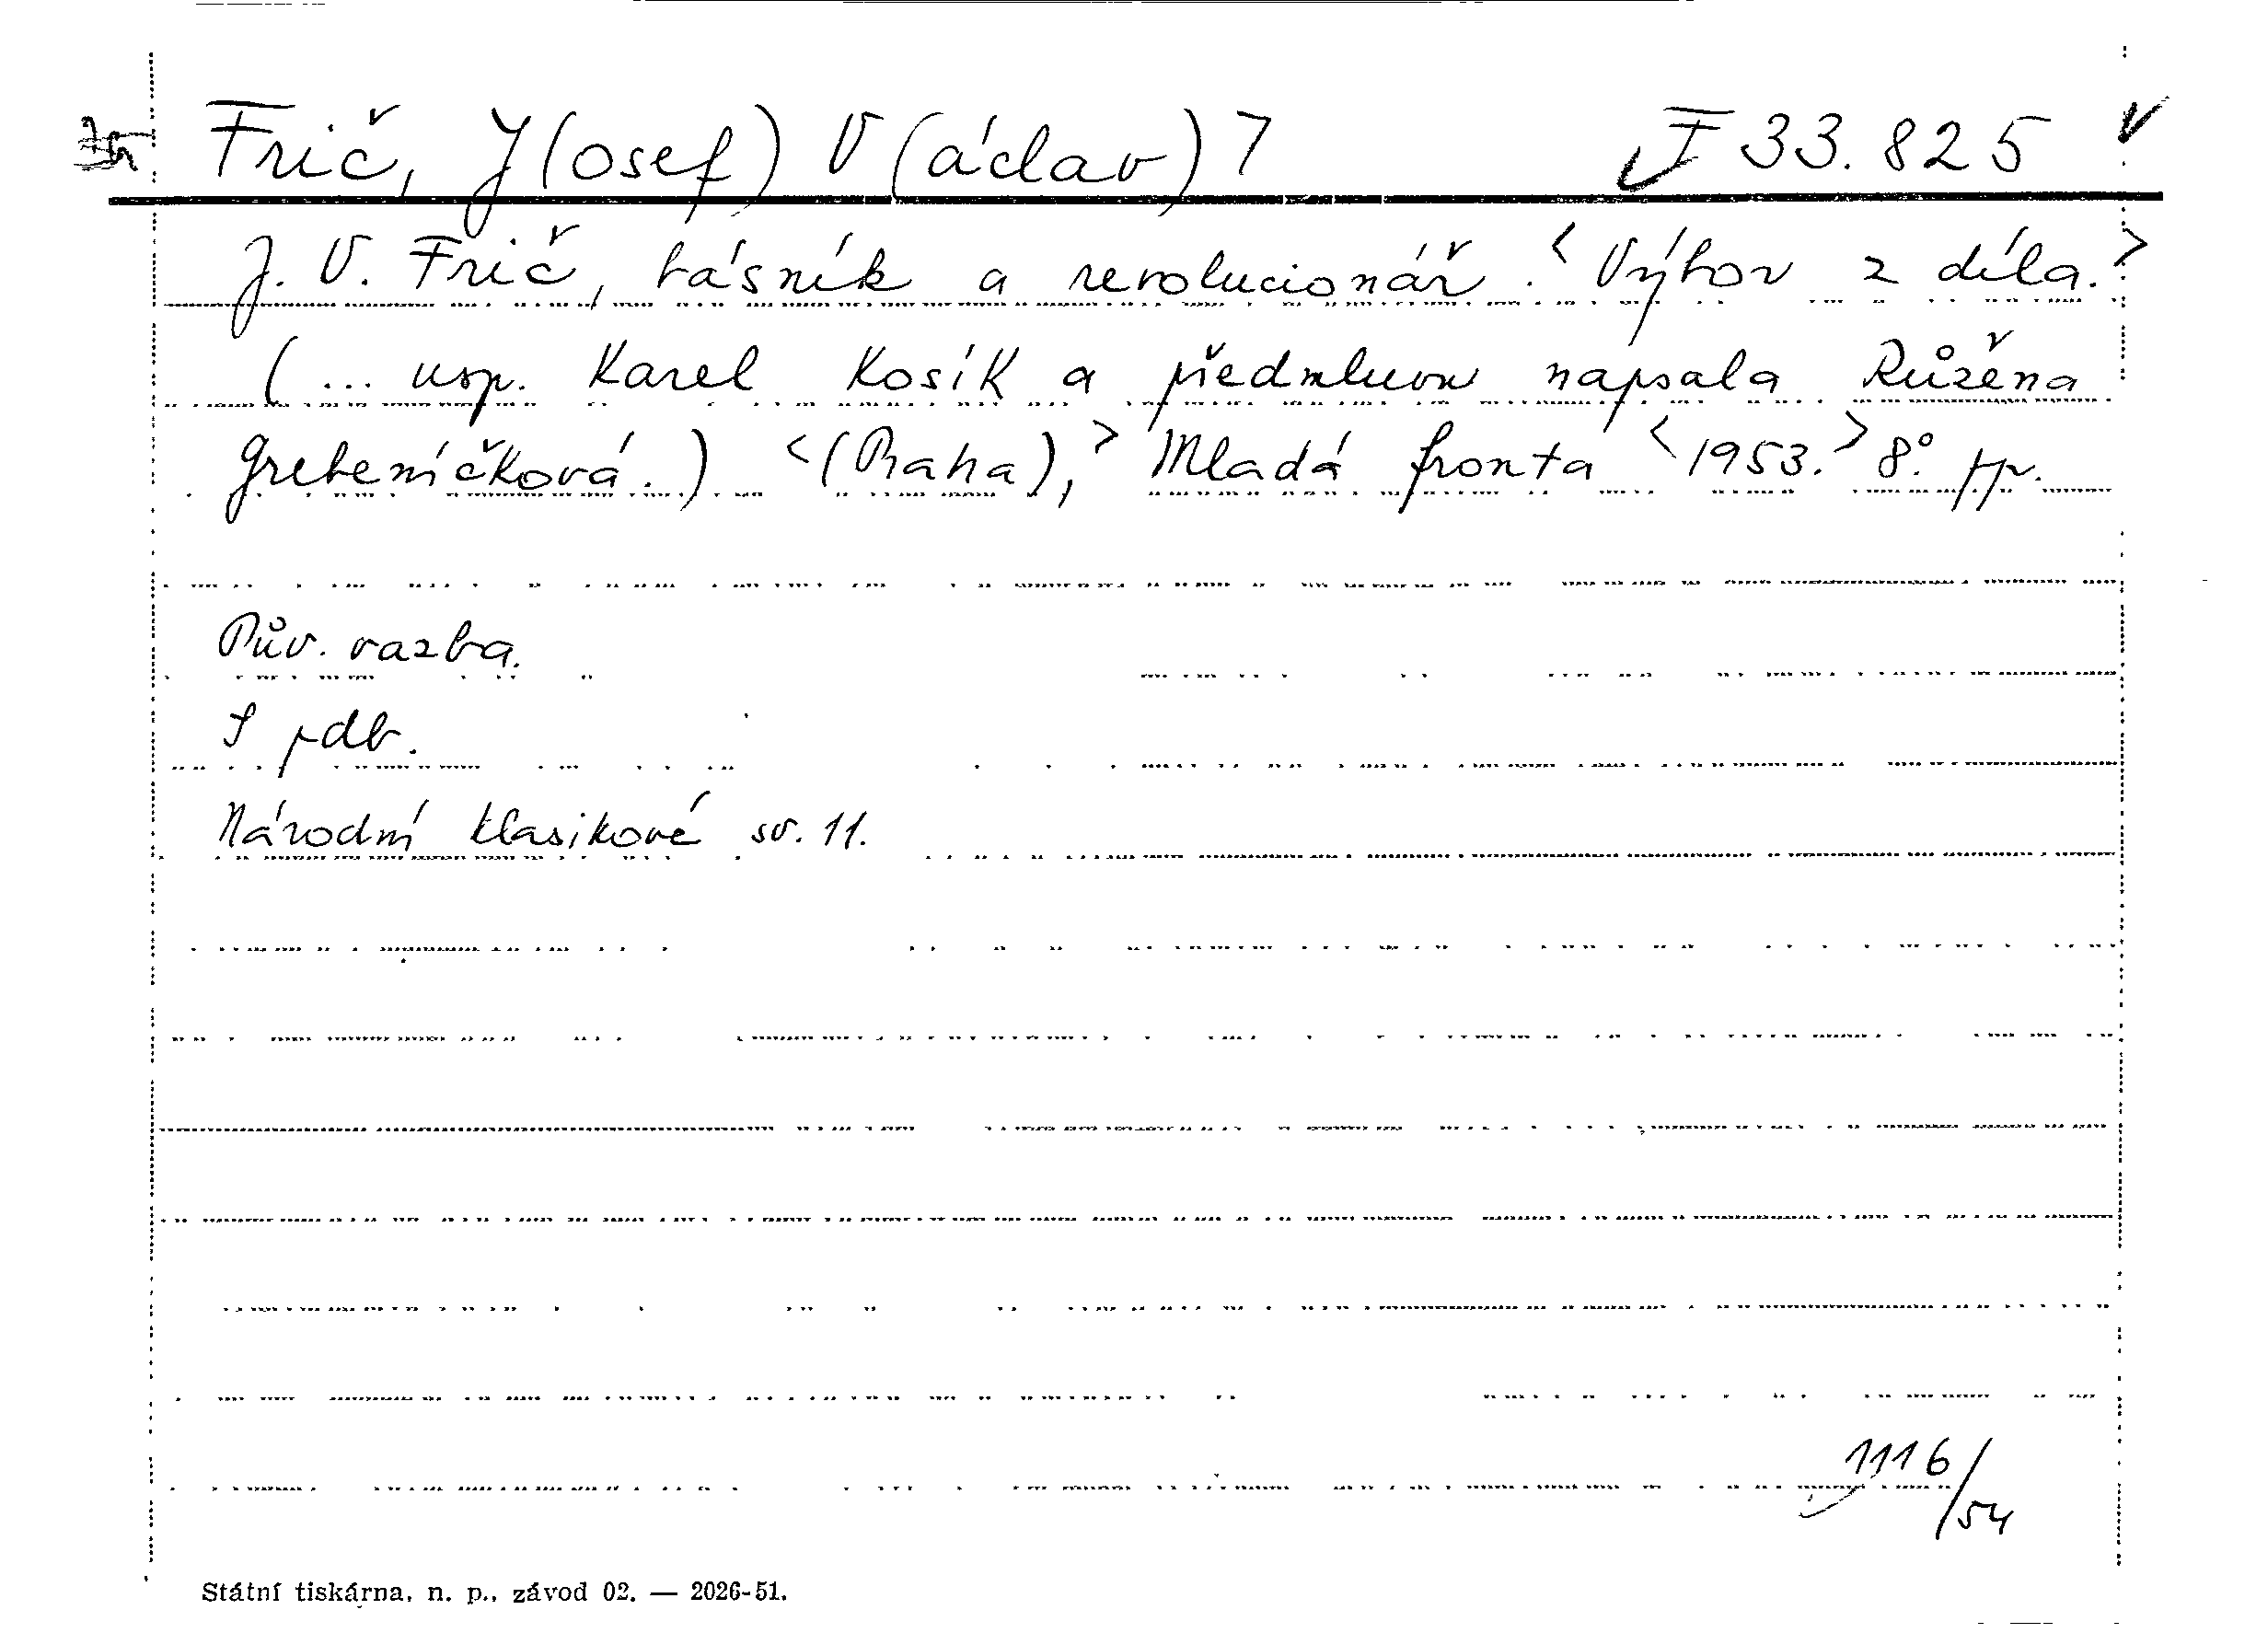 Frič, J(osef) V(áclav) 7 F 33.825
J. V. Frič, básník a revolucionář. <Výbor z díla.>
(... usp. Karel Kosík a předmluvu napsala Růžena
Grebeníčková.) <(Praha),> Mladá fronta <1953.> 8°. pp.
Pův. vazba.
S pdb.
Národní klasikové sv. 11.
1116/54
Státní tiskárna, n. p., závod 02. — 2026-51.